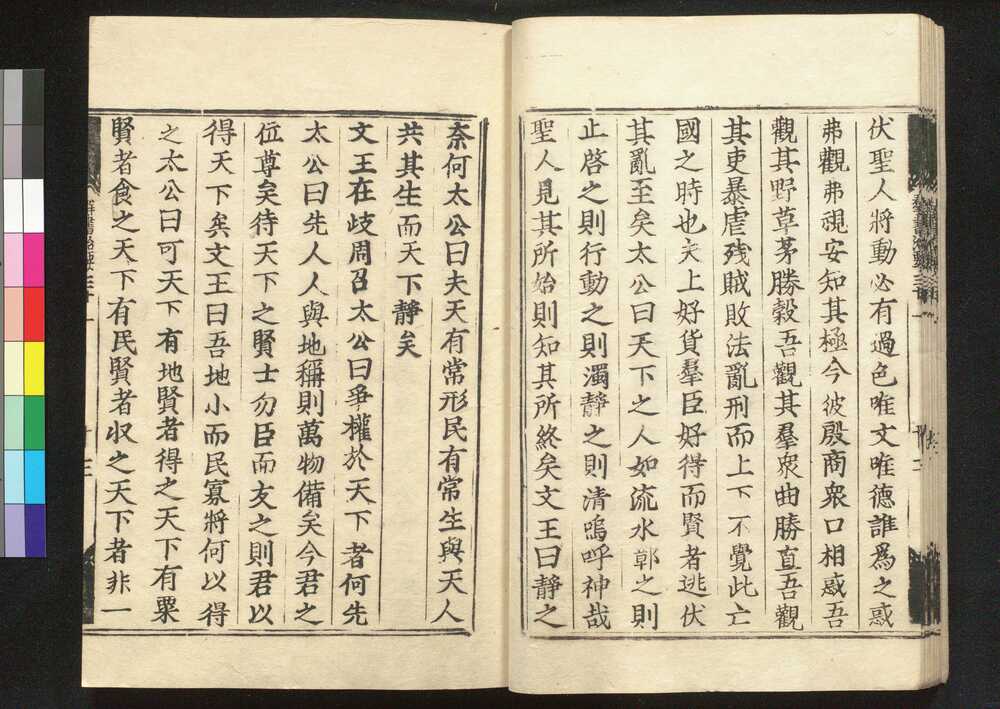 伏聖人將動必有過色唯文唯德誰為之惑
弗觀弗視安知其極今彼殷商衆口相惑吾
觀其野草茅勝穀吾觀其羣衆曲勝直吾觀
其吏暴虐残賊敗法亂刑而上下不覺此亡
國之時也夫上好貨羣臣好得而賢者逃伏
其亂至矣太公曰天下之人如流水鄣之則
止啓之則行動之則濁靜之則清嗚呼神哉
聖人見其所始則知其所終矣文王曰靜之
奈何太公曰夫天有常形民有常生與天人
共其生而天下靜矣
文王在歧周召太公曰爭權於天下者何先
太公曰先人人與地稱則萬物備矣今君之
位尊矣待天下之賢士勿臣而友之則君以
得天下矣文王曰吾地小而民寡將何以得
之太公曰可天下有地賢者得之天下有粟
賢者食之天下有民賢者収之天下者非一
群書治要三十一